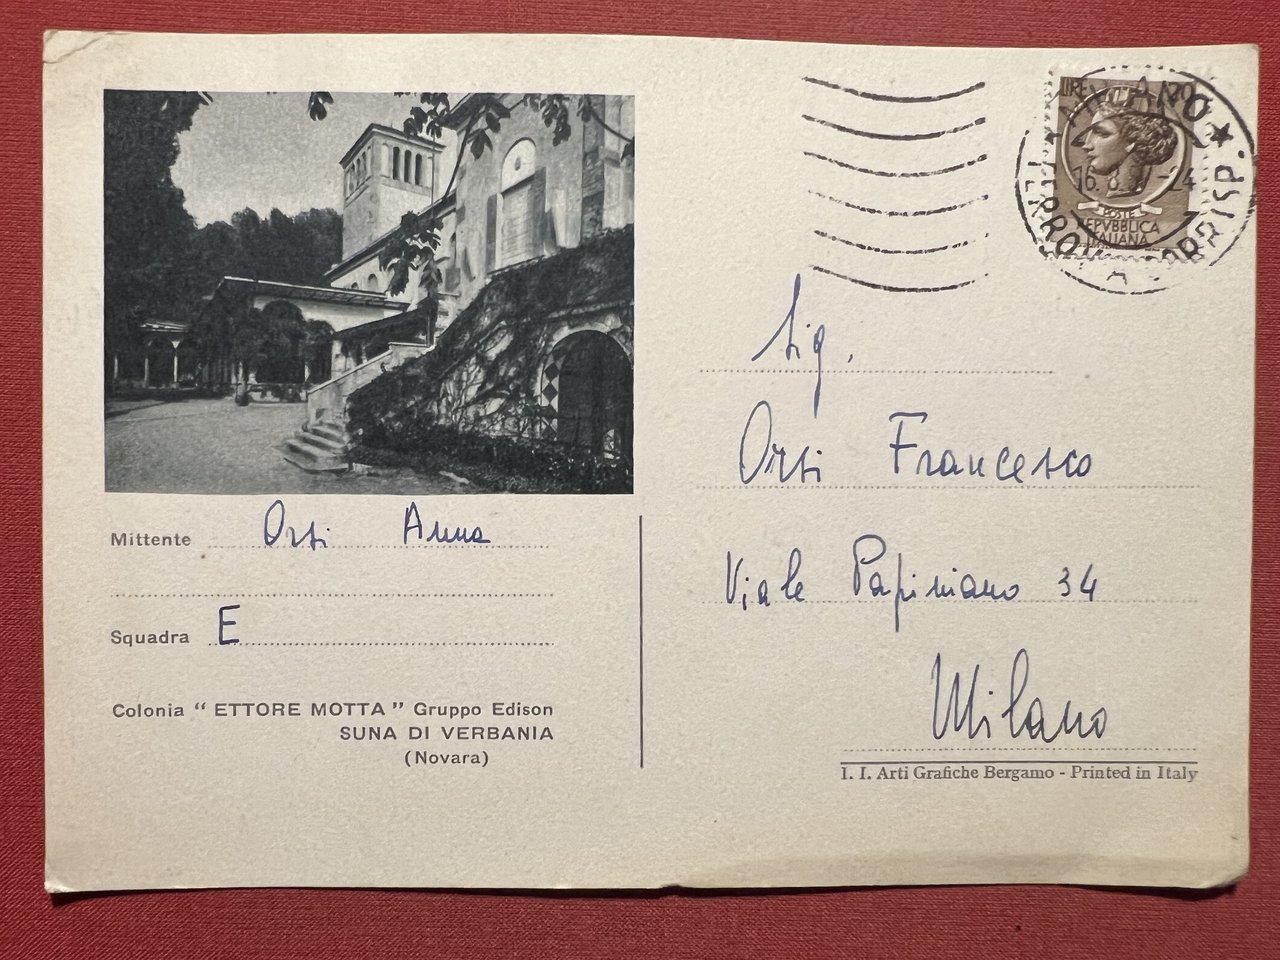 LIRE 20
POSTE
REPVBBLICA
ITALIANA
MILANO
FERROVIA CORRISP.
16. 8.
-24
Sig.
Orsi Francesco
Viale Papiniano 34
Milano
I. I. Arti Grafiche Bergamo - Printed in Italy
Mittente Orsi Anna
Squadra E
Colonia “ ETTORE MOTTA ” Gruppo Edison
SUNA DI VERBANIA
(Novara)